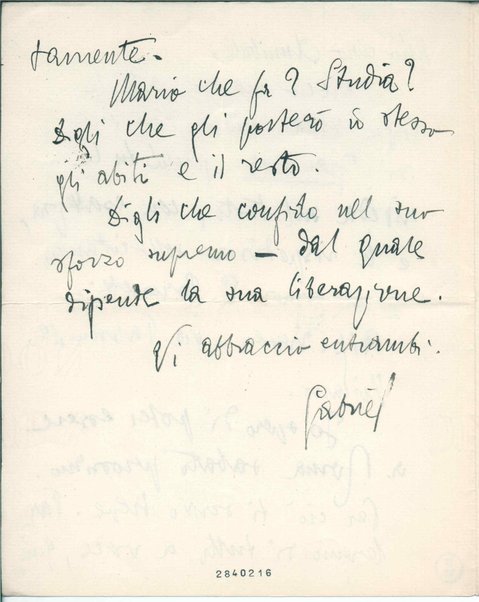 tamente.
Mario che fa? Studia?
Digli che gli porterò io stesso
gli abiti e il resto.
Digli che confido nel suo
sforzo supremo — dal quale
dipende la sua liberazione.
Vi abbraccio entrambi.
Gabriel
2840216